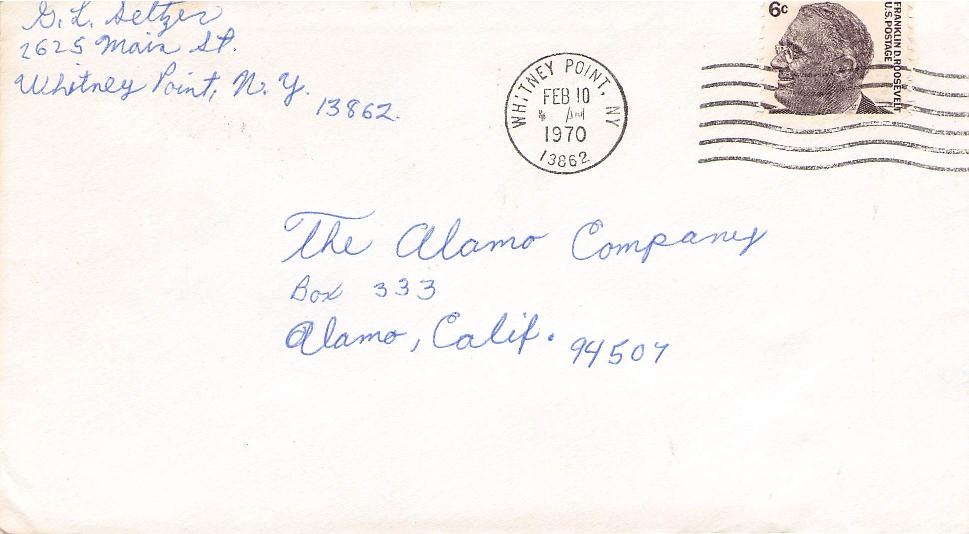 G. L. Seltzer
2625 Main St.
Whitney Point, N. Y.
13862.
WHITNEY POINT, NY
FEB 10
AM
1970
13862
6c
FRANKLIN D. ROOSEVELT
U.S. POSTAGE
The Alamo Company
Box 333
Alamo, Calif. 94507